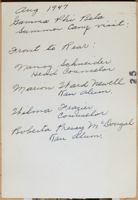 Aug 1947
Gamma Phi Beta
Summer Camp visit:
Front to Rear:
Nancy Schneider
Head Counselor
Marion Ward Newell
Den Alum.
Thelma Frazier
Counselor
Roberta Presey McDougal
Den Alum.
25